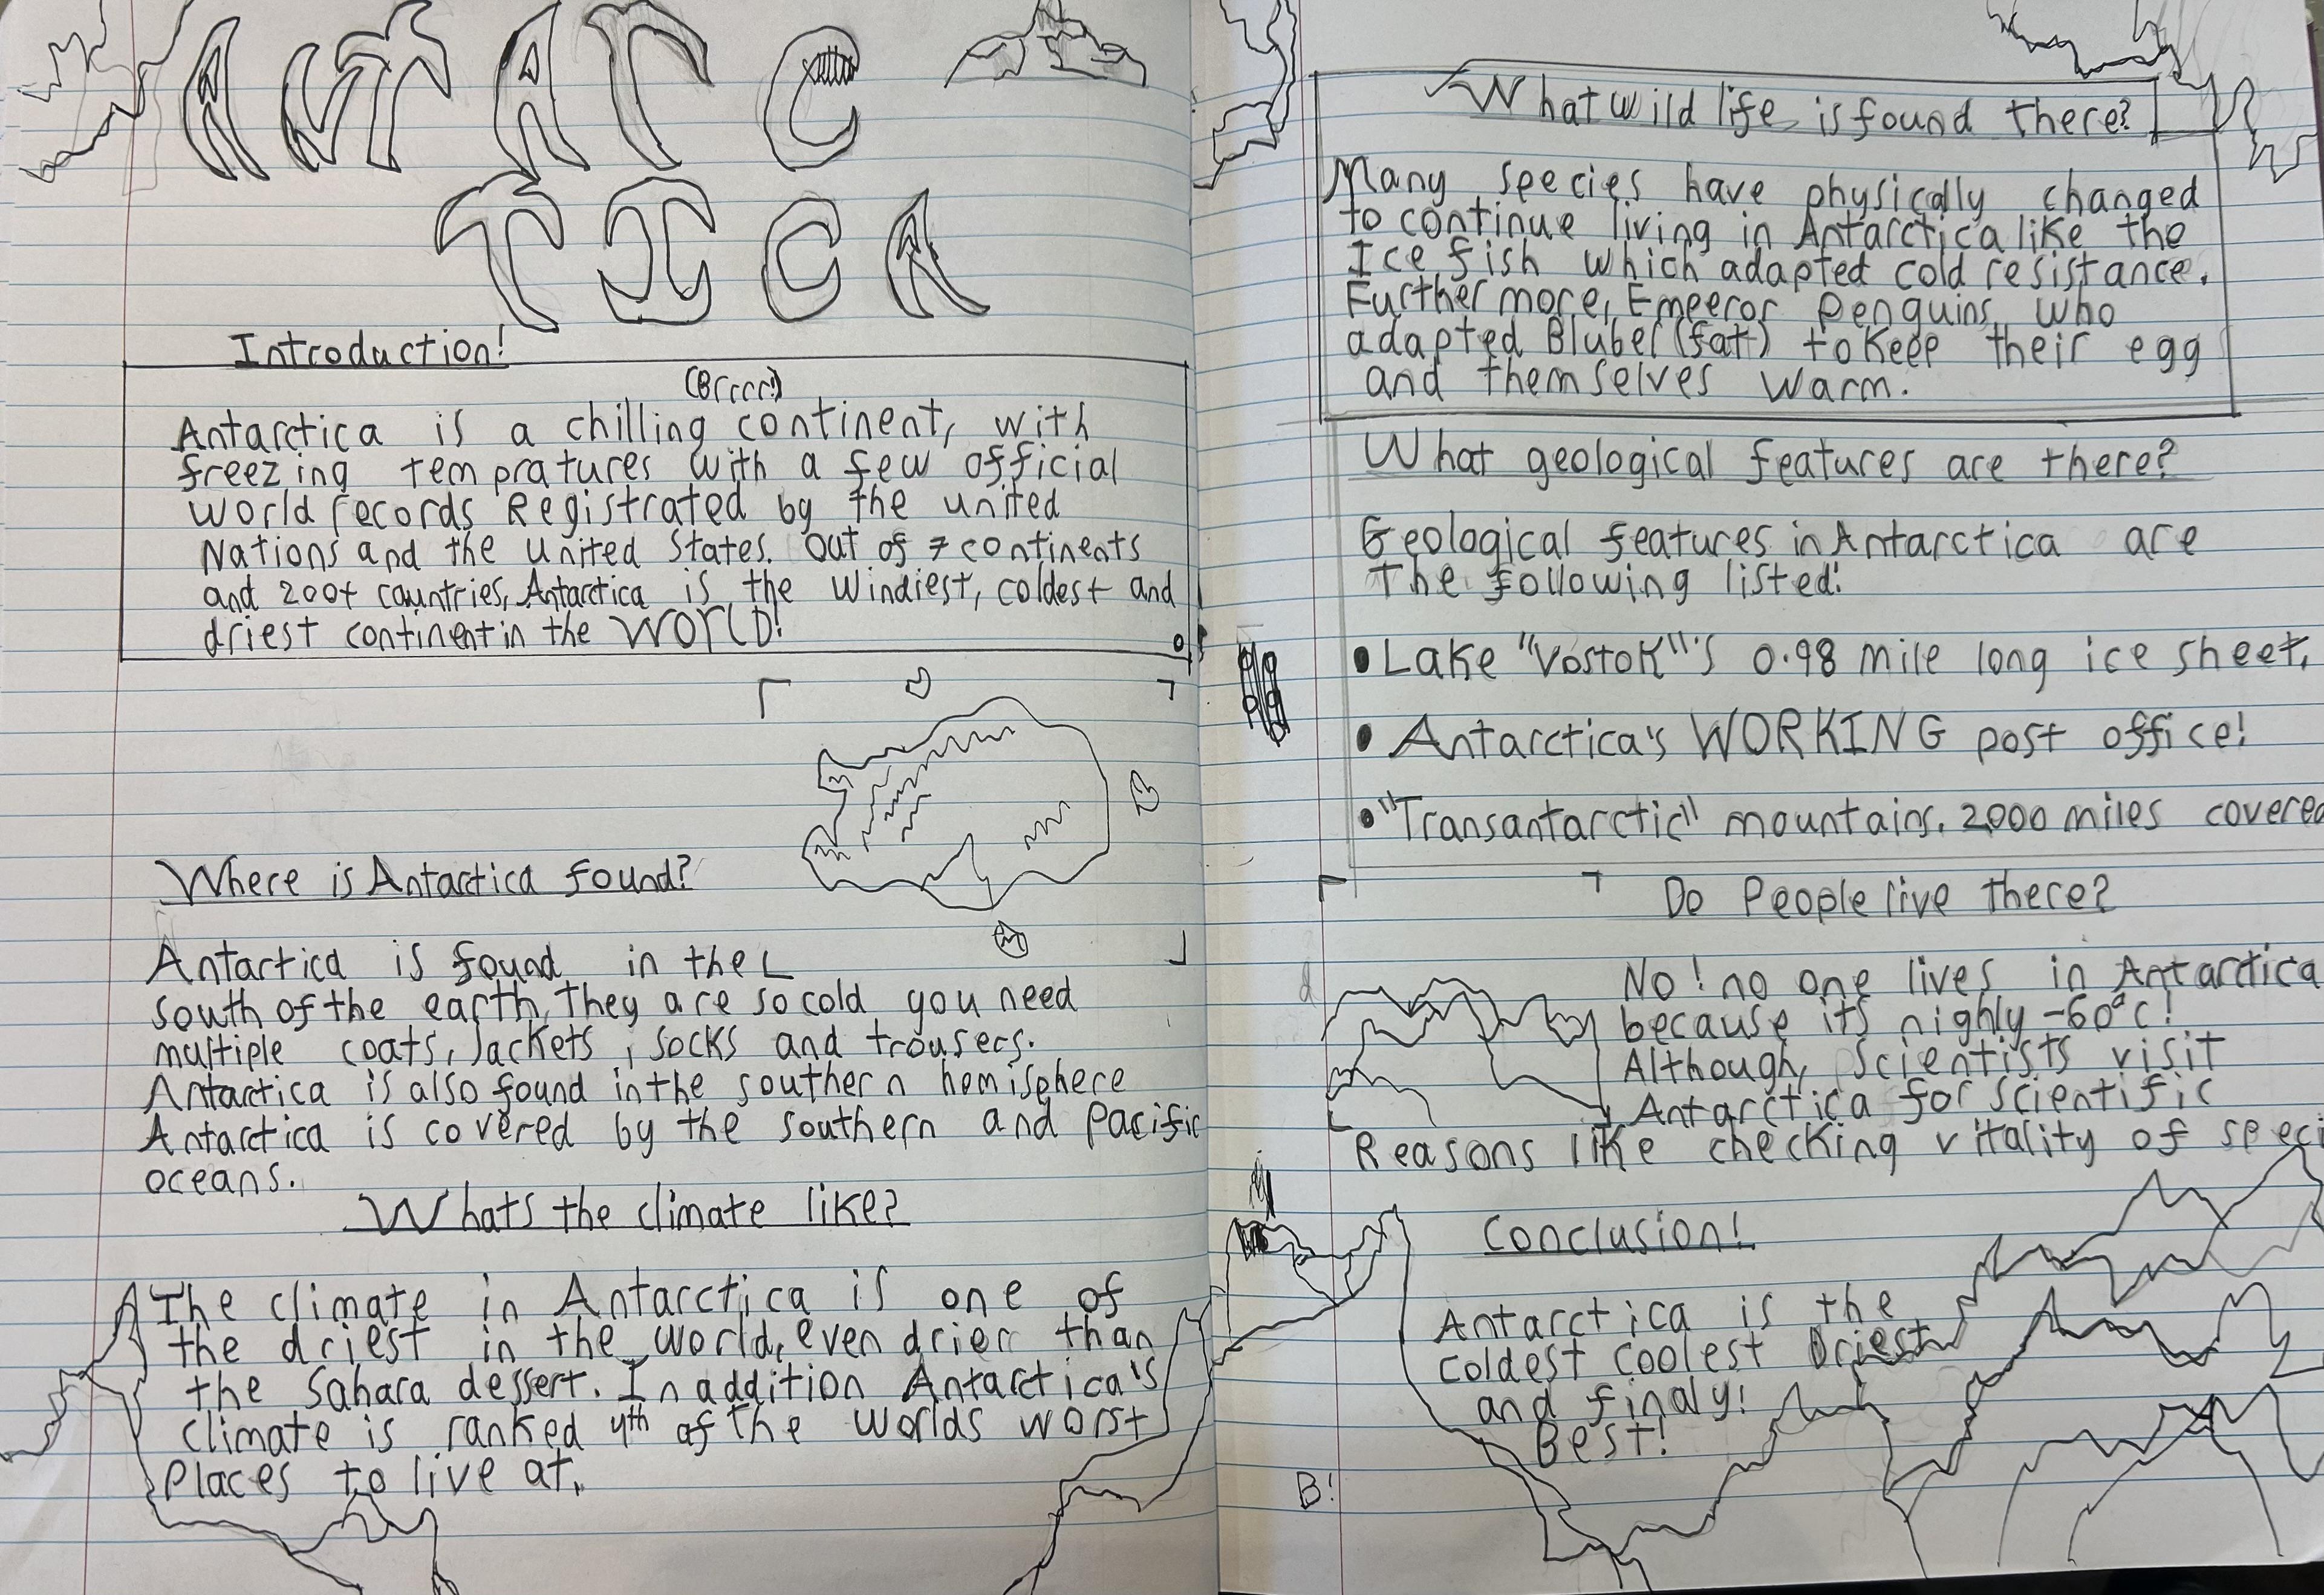 ANTARC
TICA
Introduction!
(Brrrr!)
Antarctica is a chilling continent, with
freezing tempratures with a few official
world records Registrated by the united
Nations and the united States. Out of 7 continents
and 200+ countries, Antarctica is the windiest, coldest and
driest continent in the WORLD!
Where is Antarctica found?
Antartica is found in the
south of the earth, they are so cold you need
multiple coats, Jackets, socks and trousers.
Antarctica is also found in the southern hemisphere
Antarctica is covered by the southern and pacific
oceans.
Whats the climate like?
The climate in Antarctica is one of
the driest in the world, even drier than
the Sahara dessert. In addition Antarctica's
climate is ranked 4th of the worlds worst
Places to live at.
What wild life is found there?
Many species have physically changed
to continue living in Antarctica like the
Ice fish which adapted cold resistance.
Furthermore, Emperor Penguins who
adapted Bluber (fat) to keep their egg
and themselves warm.
What geological features are there?
Geological features in Antarctica are
The following listed:
• Lake "Vostok"'s 0.98 mile long ice sheet.
• Antarctica's WORKING post office!
• "Transantarctic" mountains. 2000 miles covered
Do People live there?
No! no one lives in Antarctica
because its highly -60°c!
Although, scientists visit
Antarctica for scientific
Reasons like checking vitality of speci
Conclusion!
Antarctica is the
coldest coolest Driest
and finaly!
Best!
B!